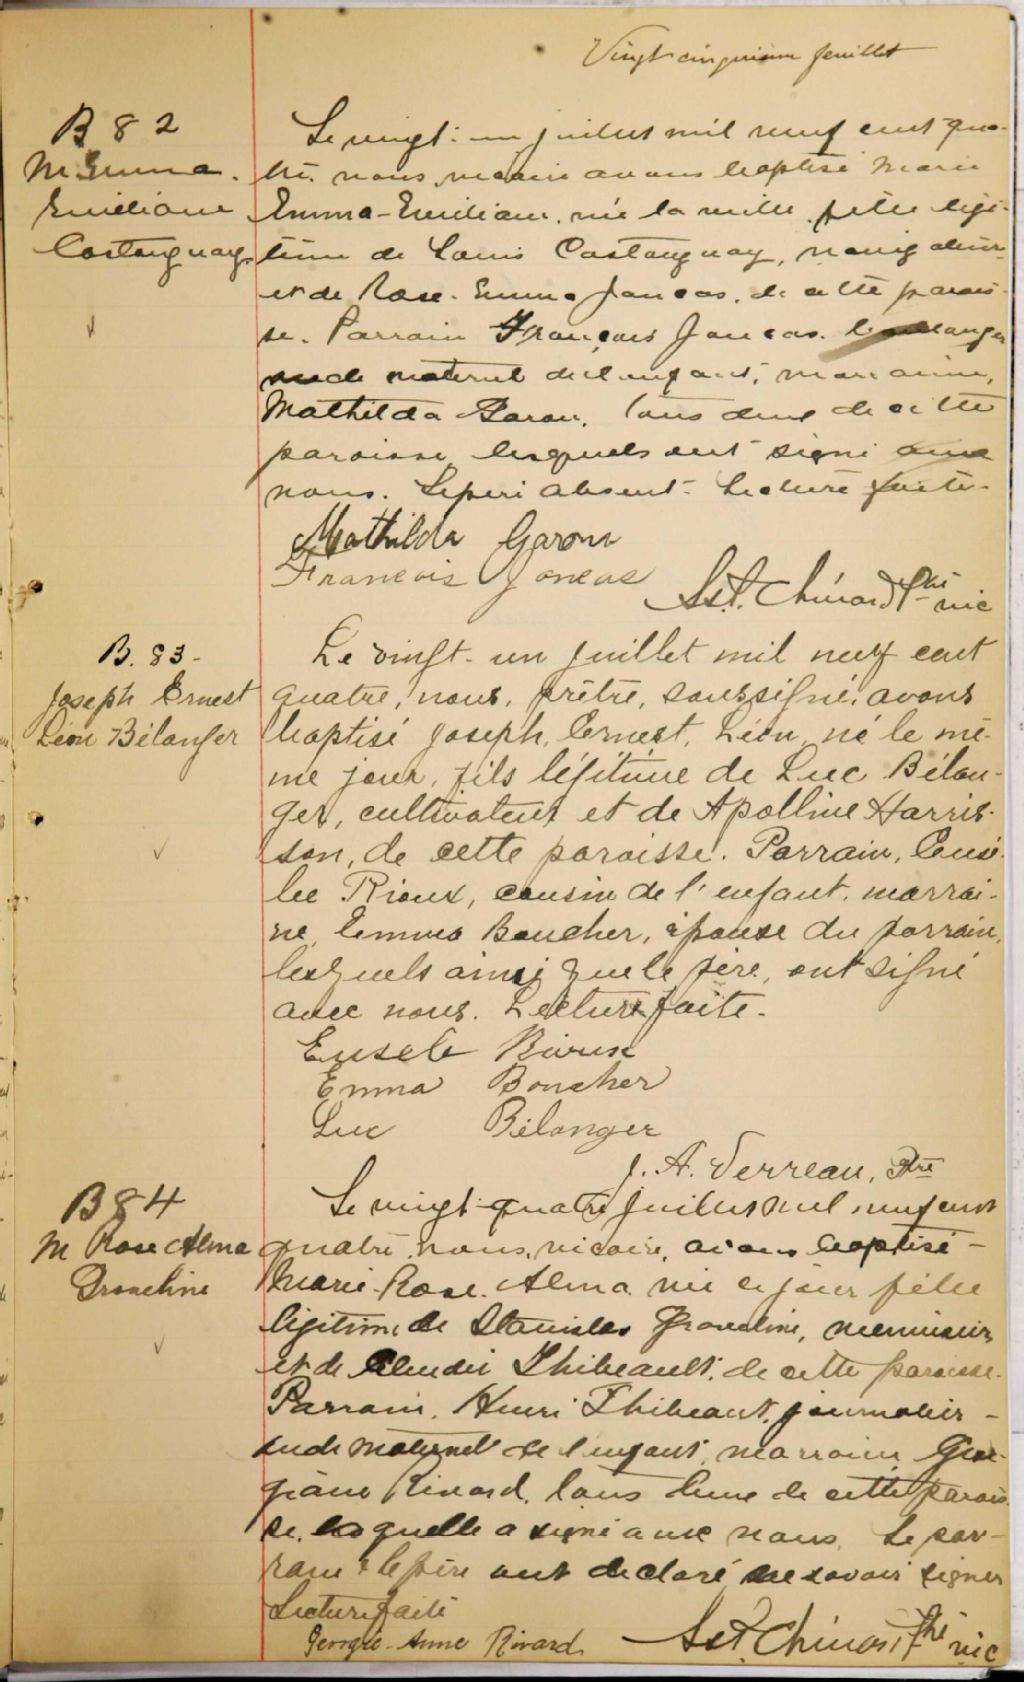 Vingt cinquième feuillet
B 82
M. Emma.
Emiliane
Castonguay
Le vingt-un juillet mil neuf cent qua-
tre nous, vicaire avons baptisé Marie
Emma-Emiliane, née la veille, fille légi-
time de Louis Castonguay, navigateur
et de Rose-Emma Joncas, de cette parois-
se. Parrain François Joncas. boulanger
oncle maternel de l'enfant, marraine,
Mathilda Garon, tous deux de cette
paroisse, lesquels ont signé avec
nous. Le père absent. Lecture faite.
Mathilda Garon
Francois Joncas
Ls. F. Chinard Ptre vic
B. 83-
Joseph Ernest
Léon Bélanger
Le vingt-un juillet mil neuf cent
quatre, nous, prêtre, soussigné, avons
baptisé Joseph, Ernest, Léon, né le mê-
me jour, fils légitime de Luc Bélan-
ger, cultivateur et de Apolline Harris-
son, de cette paroisse. Parrain, Eusè-
be Rioux, cousin de l'enfant, marrai-
ne, Emma Boucher, épouse du parrain,
lesquels ainsi que le père, ont signé
avec nous. Lecture faite.
Eusèbe Rioux
Emma Boucher
Luc Bélanger
J. A. Verreau, Ptre
B 84
M Rose Alma
Graveline
Le vingt-quatre juillet mil neuf cent
quatre nous, vicaire, avons baptisé
Marie-Rose-Alma née ce jour fille
légitime de Stanislas Graveline, menuisier,
et de Thibeault, de cette paroisse.
Parrain, Henri Thibeault, journalier
oncle maternel de l'enfant, marraine Geor-
giane Rivard, tous deux de cette parois-
se, laquelle a signé avec nous. Le par-
rain & le père ont declaré ne savoir signer
Lecture faite
Georgie-Anne Rivard
Ls. F. Chinard Ptre vic